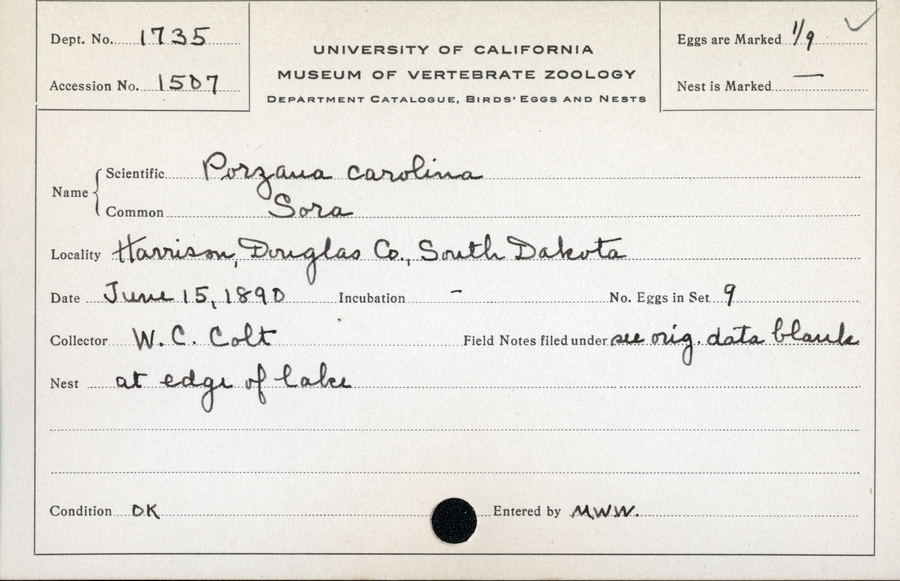 Dept. No. 1735
Accession No. 1507
UNIVERSITY OF CALIFORNIA
MUSEUM OF VERTEBRATE ZOOLOGY
DEPARTMENT CATALOGUE, BIRDS' EGGS AND NESTS
Eggs are Marked 1/9 ✓
Nest is Marked —
Name { Scientific Porzana carolina
Common Sora
Locality Harrison, Douglas Co., South Dakota
Date June 15, 1890 Incubation - No. Eggs in Set 9
Collector W. C. Colt Field Notes filed under see orig. data blank
Nest at edge of lake
Condition OK Entered by MWW.